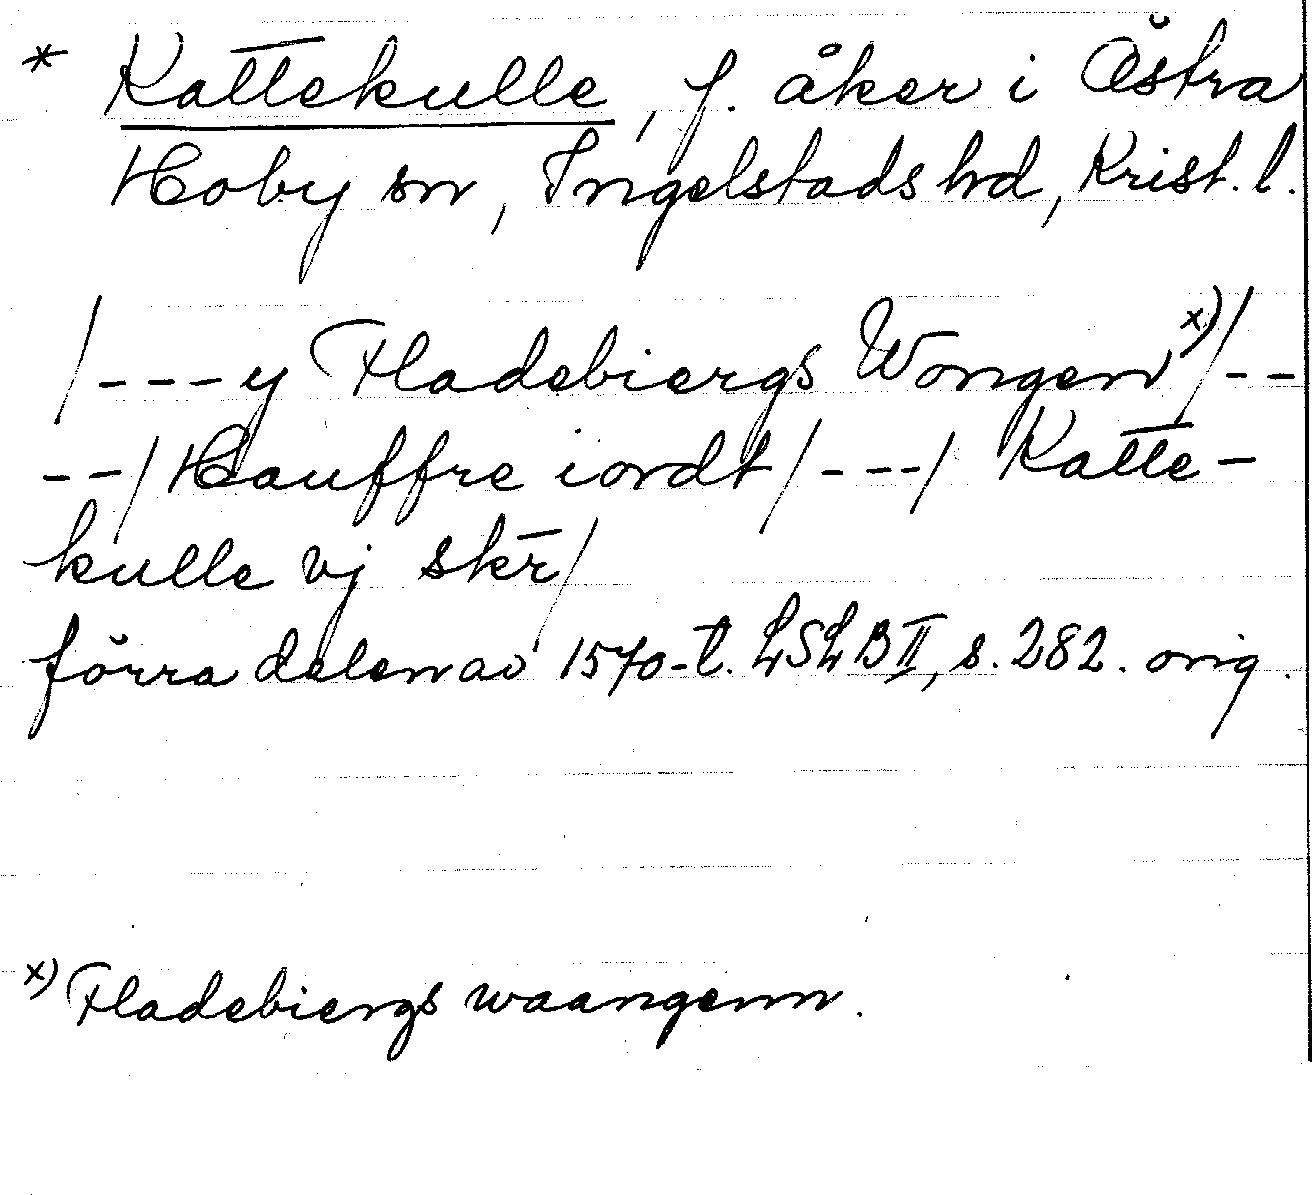 * Kattekulle, f. åker i Östra
Hoby sn, Ingelstads hd, Krist. l.
/---y Fladebiergs Wongen x)/--
--/Hauffre iordt/---/ Katte-
kulle vj skr̄/
förra delen av 1570-t. LSLB II, s. 282. orig.
x) Fladebiergs waangenn.